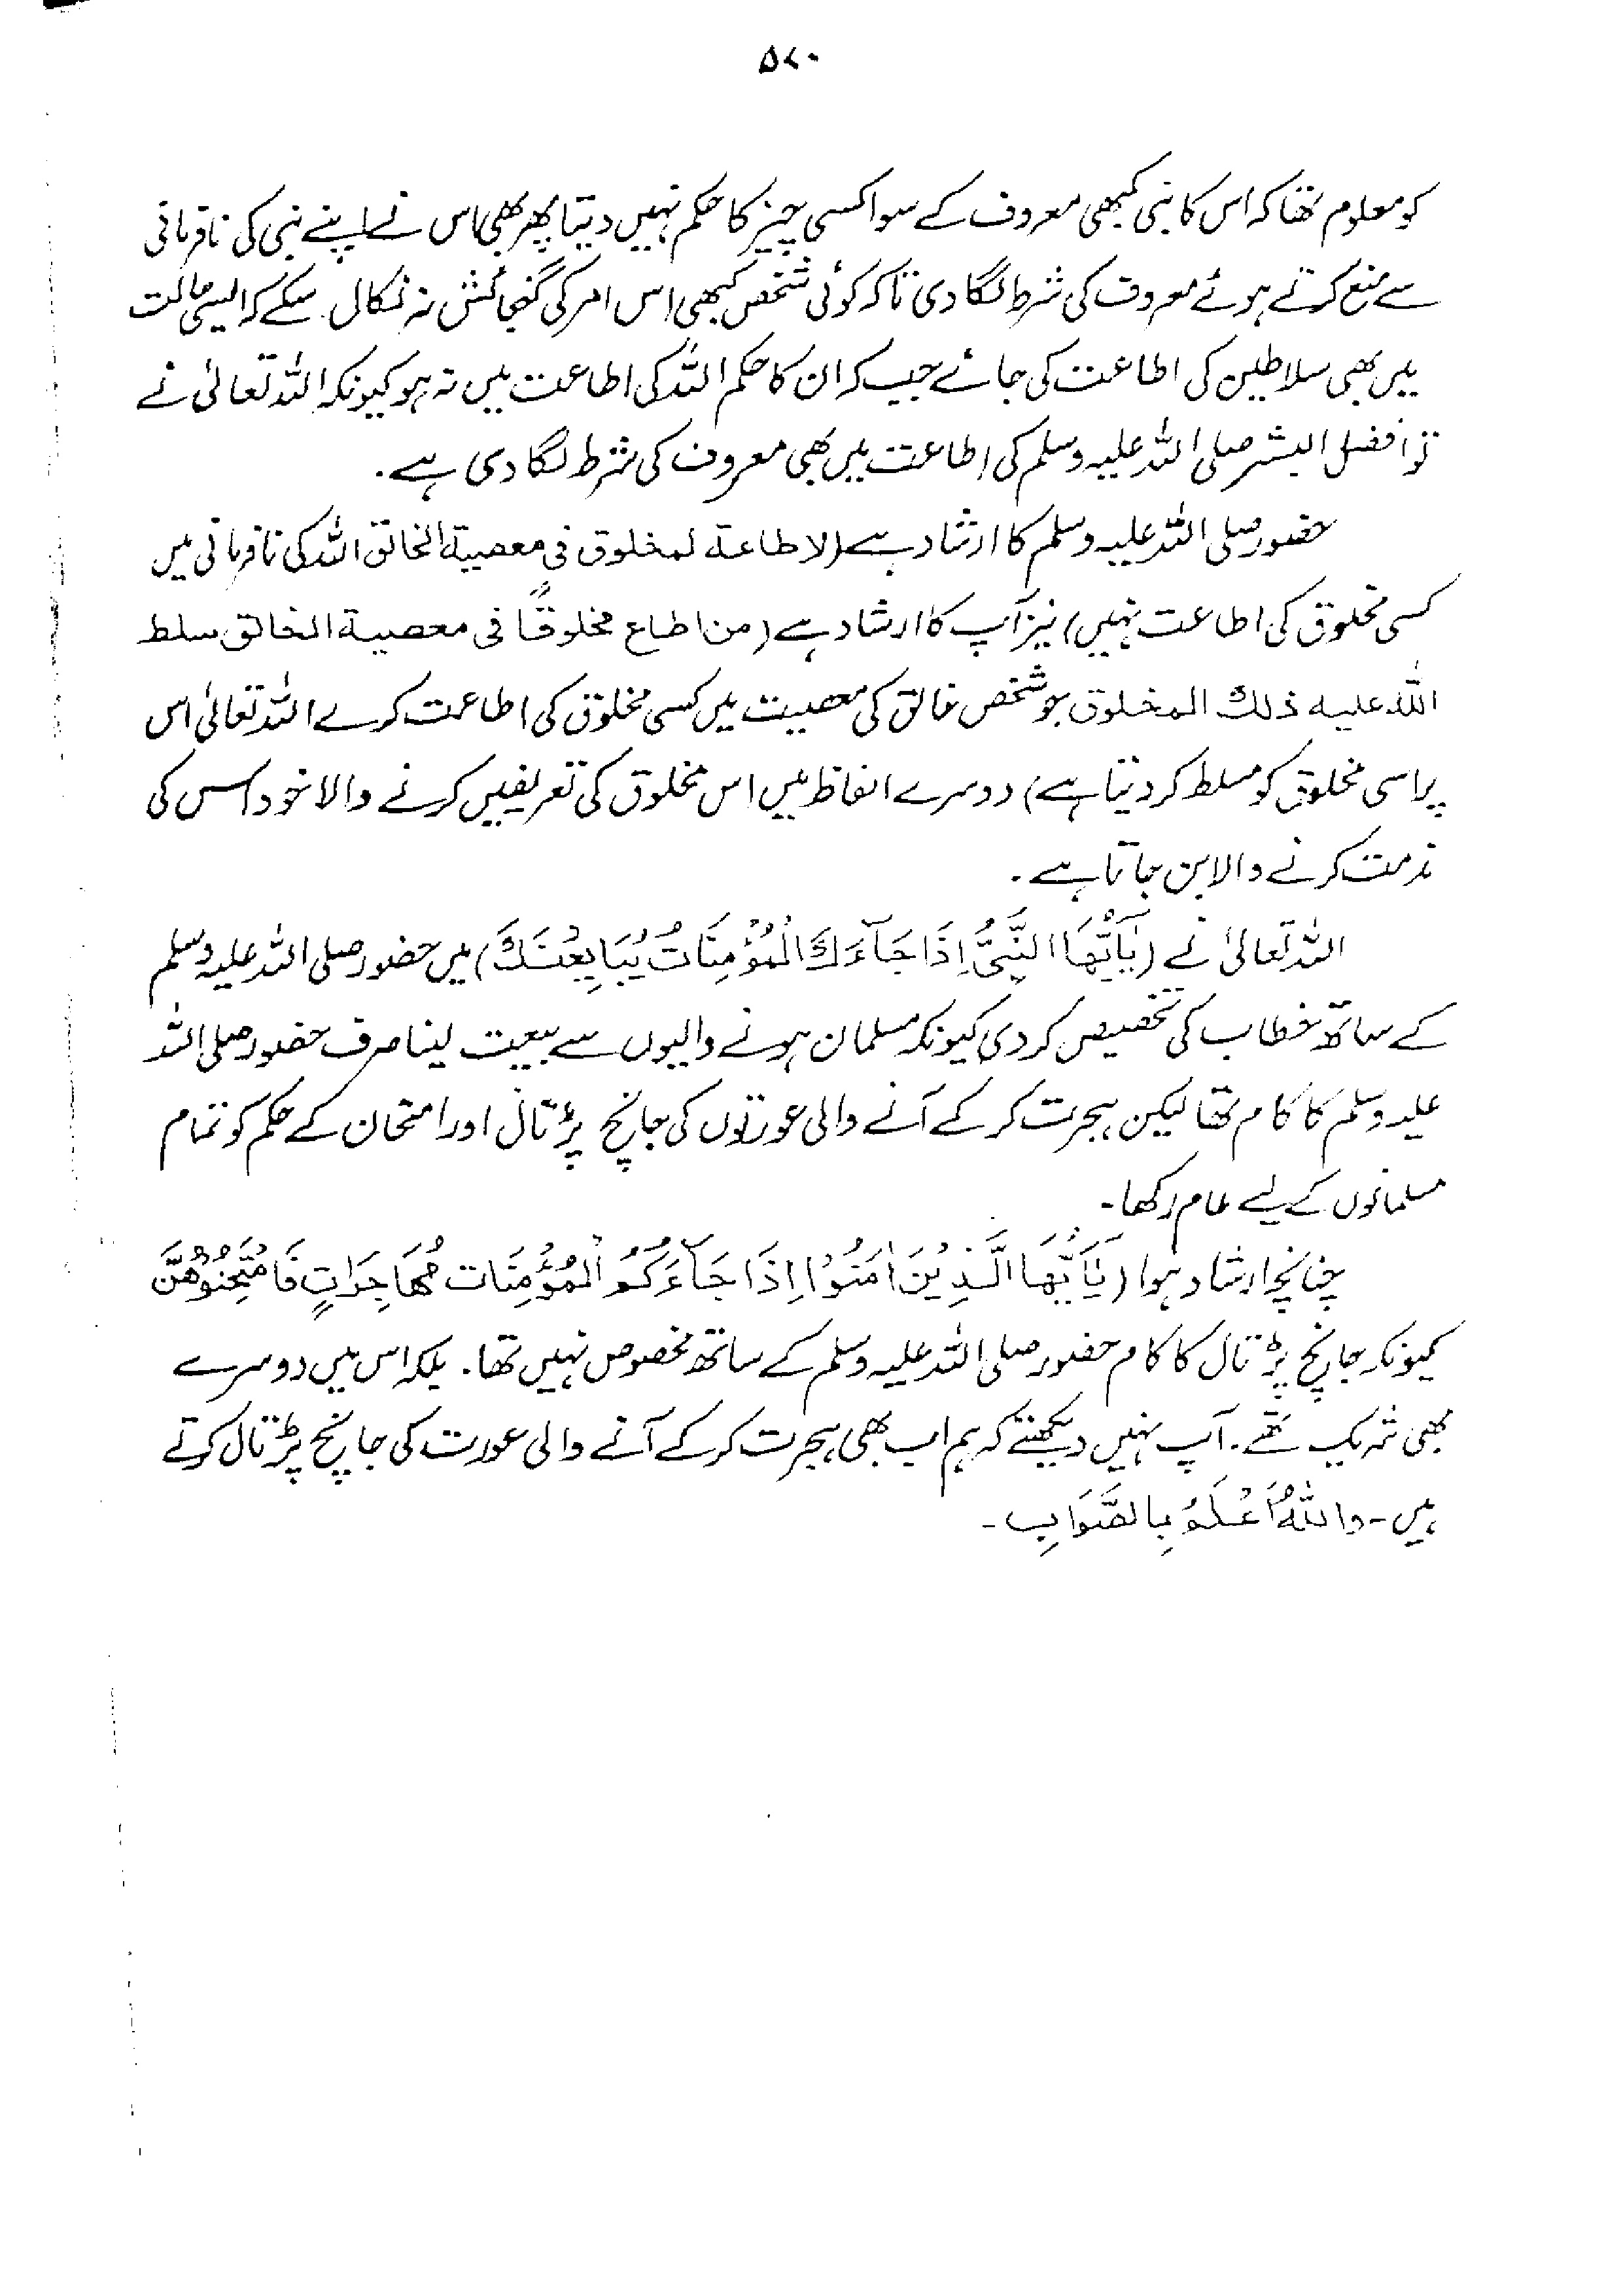 ۵۷۰
کو معلوم تھا کہ اس کا نبی کبھی معروف کے سوا کسی چیز کا حکم نہیں دیتا پھر بھی اس نے اپنے نبی کی نافرمانی
سے منع کرتے ہوئے معروف کی شرط لگا دی تاکہ کوئی شخص کبھی اس امر کی گنجائش نہ نکال سکے کہ ایسی حالت
میں بھی سلاطین کی اطاعت کی جائے جب کہ ان کا حکم اللہ کی اطاعت میں نہ ہو کیونکہ اللہ تعالیٰ نے
تو افضل البشر صلی اللہ علیہ وسلم کی اطاعت میں بھی معروف کی شرط لگا دی ہے۔
حضور صلی اللہ علیہ وسلم کا ارشاد ہے (لا طاعة لمخلوق فی معصیة الخالق اللہ کی نافرمانی میں
کسی مخلوق کی اطاعت نہیں) نیز آپ کا ارشاد ہے (من اطاع مخلوقًا فی معصیة الخالق سلط
اللہ علیہ ذلك المخلوق جو شخص خالق کی معصیت میں کسی مخلوق کی اطاعت کرے اللہ تعالیٰ اس
پر اسی مخلوق کو مسلط کر دیتا ہے) دوسرے الفاظ میں اس مخلوق کی تعریفیں کرنے والا خود اس کی
مذمت کرنے والا بن جاتا ہے۔
اللہ تعالیٰ نے (يٰٓاَيُّهَا النَّبِيُّ اِذَا جَآءَكَ الْمُؤْمِنَاتُ يُبَايِعْنَكَ) میں حضور صلی اللہ علیہ وسلم
کے ساتھ خطاب کی تخصیص کر دی کیونکہ مسلمان ہونے والیوں سے بیعت لینا صرف حضور صلی اللہ
علیہ وسلم کا کام تھا لیکن ہجرت کر کے آنے والی عورتوں کی جانچ پڑتال اور امتحان کے حکم کو تمام
مسلمانوں کے لیے عام رکھا۔
چنانچہ ارشاد ہوا (يٰٓاَيُّهَا الَّذِيْنَ اٰمَنُوْا اِذَا جَآءَكُمُ الْمُؤْمِنَات مُهَاجِرَاتٍ فَامْتَحِنُوْهُنَّ
کیونکہ جانچ پڑتال کا کام حضور صلی اللہ علیہ وسلم کے ساتھ مخصوص نہیں تھا۔ بلکہ اس میں دوسرے
بھی شریک تھے۔ آپ نہیں دیکھتے کہ ہم اب بھی ہجرت کر کے آنے والی عورت کی جانچ پڑتال کرتے
ہیں۔ وَاللهُ اَعْلَمُ بِالصَّوَابِ۔